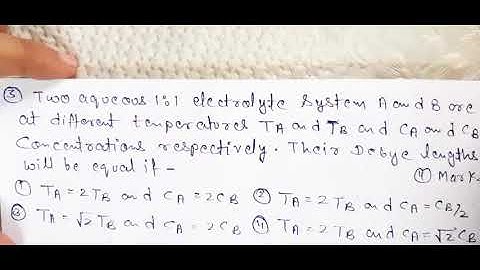 ③ Two aqueous 1:1 electrolyte system A and B are
at different temperatures TA and TB and CA and CB
Concentrations respectively. Their Debye lengths
will be equal if -
(4 Mark
① TA = 2TB and CA = 2CB ② TA = 2TB and CA = CB/2
③ TA = √2 TB and CA = 2CB ④ TA = 2TB and CA = √2 CB